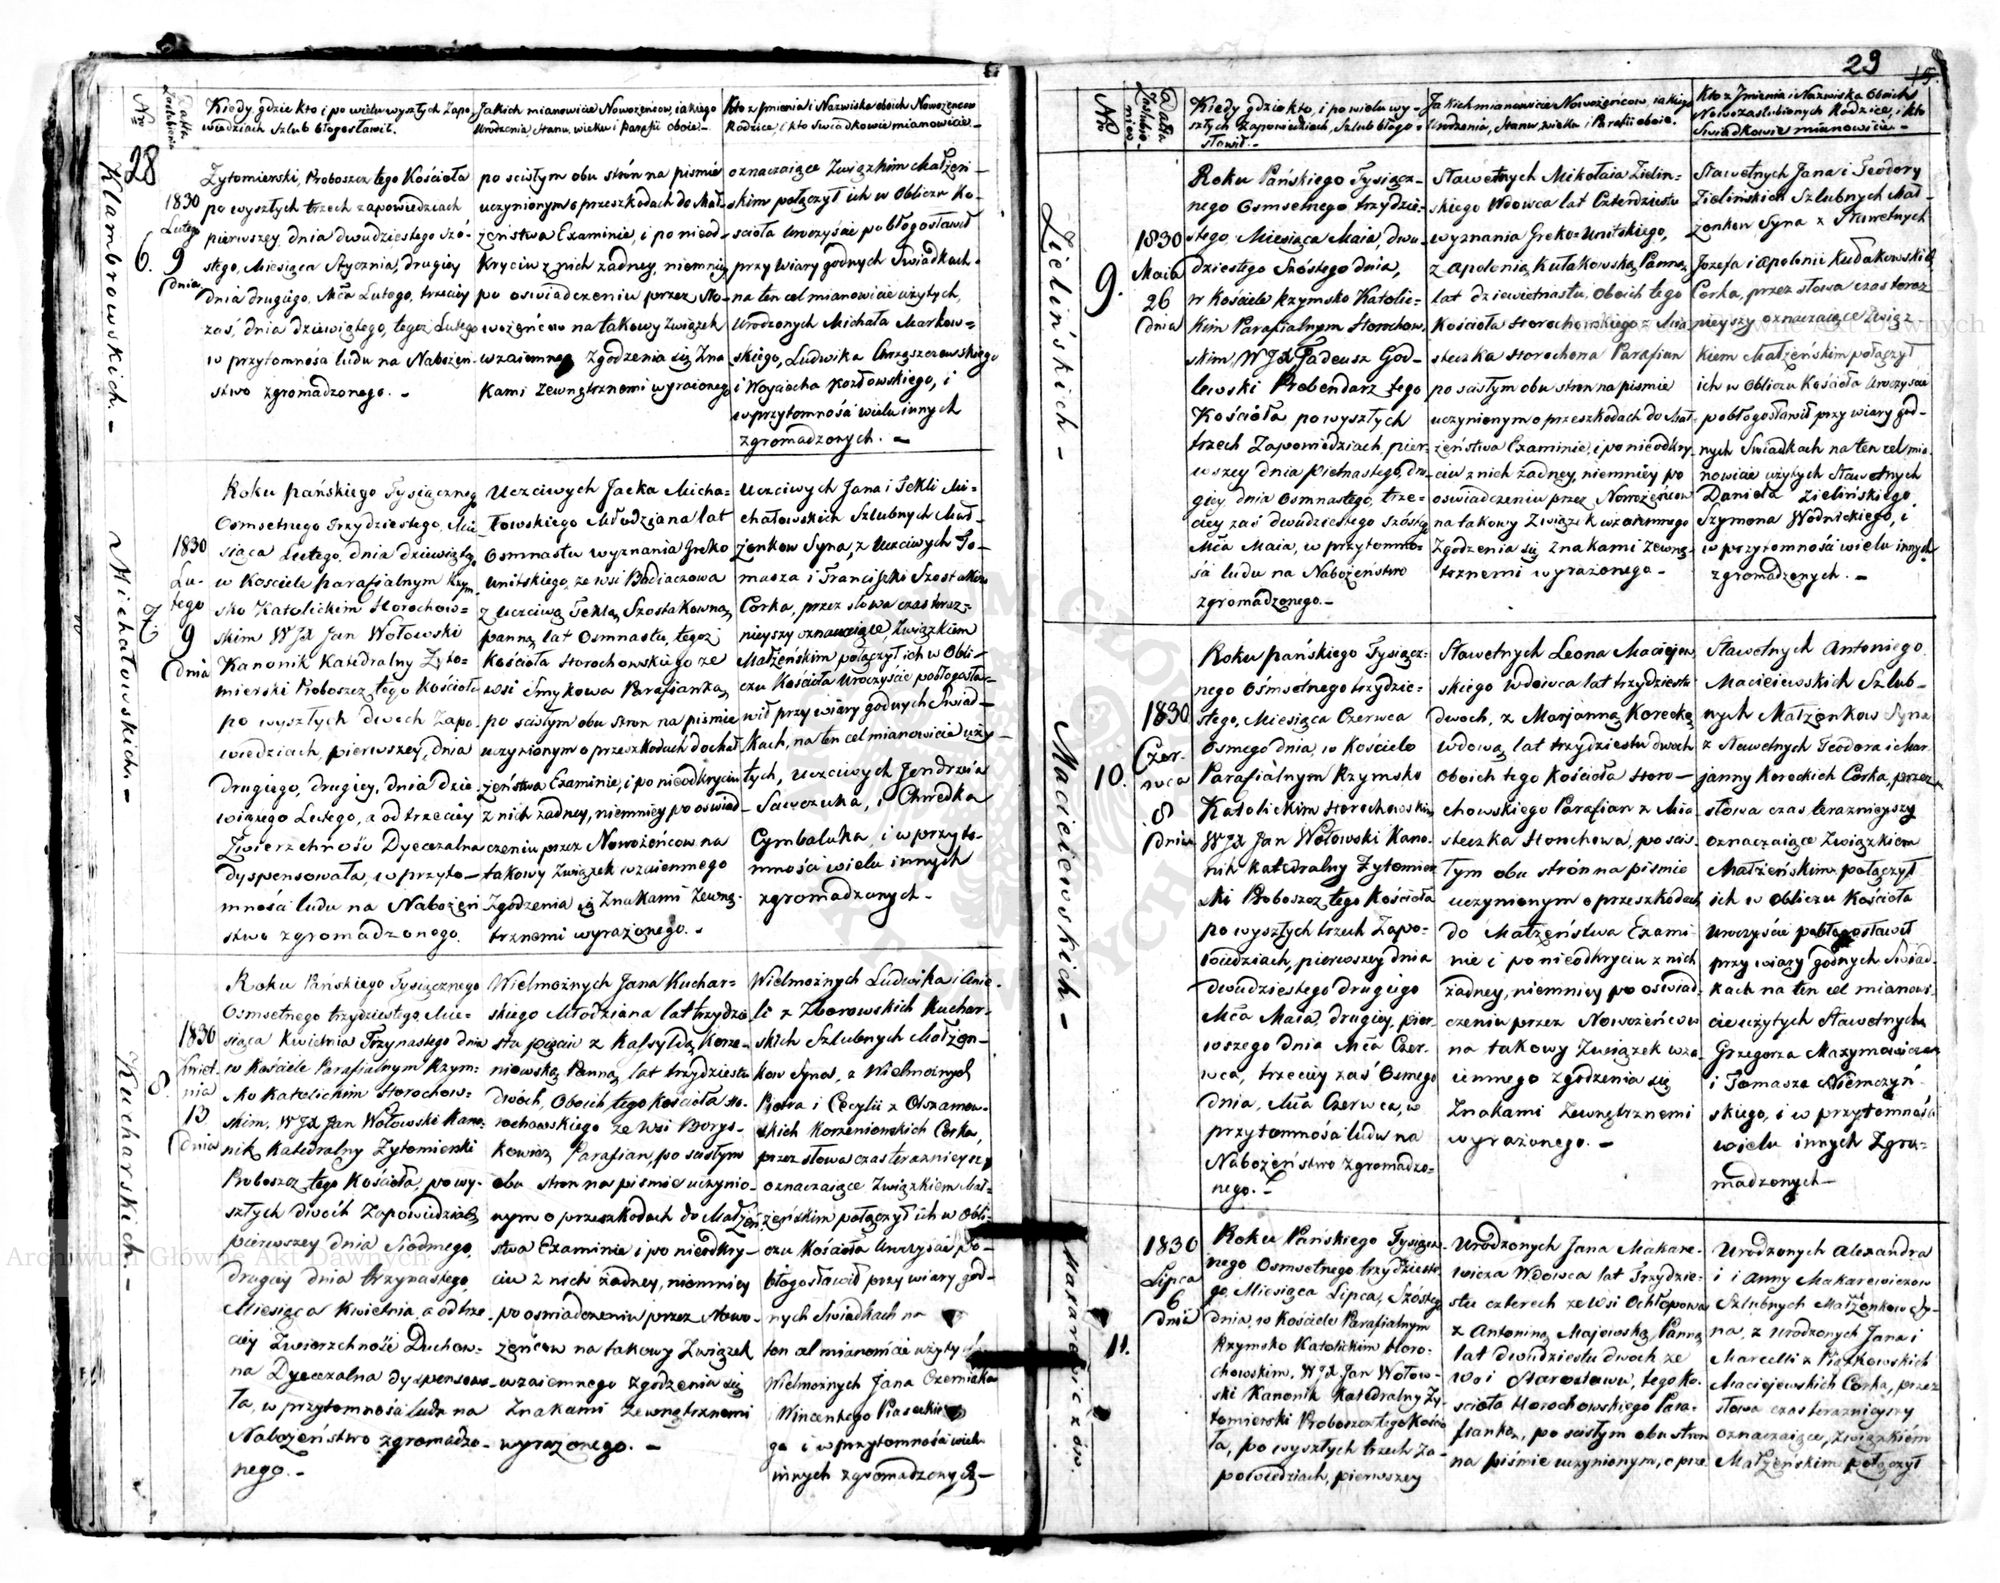 28
Nro
Data Zaślubienia
Kiedy gdzie kto i po wielu wyszłych Zapo-
wiedziach Szlub błogosławił.
Jakich mianowicie Nowożeńcow, iakiego
Urodzenia, Stanu, wieku i Parafii oboie.-
Kto z Imienia i Nazwiska oboich Nowożeńcow
Rodzice, i kto Swiadkowie mianowicie.-
Klambrowskich. -
6.
1830
Lutego
9
dnia
Zytomierski, Proboszcz tego Kościoła
po wyszłych trzech zapowiedziach
pierwszey dnia dwudziestego Szó-
stego, Miesiąca Stycznia, drugiey
dnia drugiego, Mca Lutego, trzeciey
zaś, dnia dziewiątego, tegoż Lutego
w przytomności ludu na Nabożeń-
stwo zgromadzonego. -
po scisłym obu strón na pismie
uczynionym o przeszkodach do Mał-
żeństwa Examinie, i po nieod-
kryciu z nich żadney, niemniey
po oswiadczeniu przez No-
wożeńcow na takowy Związek
wzaiemnego Zgodzenia się Zna
kami Zewnętrznemi wyrażonego
oznaczaiące Związkim Małżeń-
skim połączył ich w Obliczu Ko-
scioła Uroczyście pobłogosławił
przy wiary godnych Swiadkach
na ten cel mianowicie użytych,
Urodzonych Michała Markow-
skiego, Ludwika
i Woyciecha Kozłowskiego, i
w przytomności wielu innych
zgromadzonych. -
Michałowskich. -
7.
1830
Lu-
tego
9
dnia
Roku Pańskiego Tysiącznego
Osmsetnego Trzydziestego, Mie-
siąca Lutego, dnia dziewiątego
w Kosciele parafialnym Rzym-
sko Katolickim Horochow-
skim WJX Jan Wołowski
Kanonik Katedralny Zyto-
mierski Proboszcz tego Kościoła
po wyszłych dwoch Zapo-
wiedziach, pierwszey, dnia
Drugiego, drugiey, dnia dzie
wiątego Lutego, a od trzeciey
Zwierzchność Dyecezalna
dyspensowała, w przyto-
mności ludu na Nabożeń
stwo zgromadzonego.
Uczciwych Jacka Micha-
łowskiego Młodziana lat
Osmnastu wyznania Greko
Unitskiego, ze wsi
z Uczciwą Teklą, Szostakowną
panną, lat Osmnastu, tegoż
Kościoła Horochowskiego ze
wsi Smykowa Parafianką
po scisłym obu stron na piśmie
uczynionym o przeszkodach do Mał
żeństwa Examinie, i po nieodkryciu
z nich żadney, niemniey po oswiad-
czeniu przez Nowożeńcow na
takowy Związek wzaiemnego
Zgodzenia się Znakami Zewnę-
trznemi wyrażonego. -
Uczciwych Jana i Tekli Mi-
chałowskich Szlubnych Mał-
żonkow Syna, z Uczciwych To-
masza i Franciszki Szostakow
Corka, przez słowa czas teraz-
nieyszy oznaczaiące, Związkiem
Małżeńskim połączył ich w Obli-
czu Kościoła Uroczyście pobłogosła-
wił przy wiary godnych Swiad-
kach, na ten cel mianowicie uży-
tych, Uczciwych Jendrzeia
Sawczuka, i Chwedka
Cymbaluka, i w przyto-
mności wielu innych
zgromadzonych. -
Kucharskich. -
8.
1830
Kwiet-
nia
13
dnia
Roku Pańskiego Tysiącznego
Osmsetnego trzydziestego, Mie-
siąca Kwietnia Trzynastego dnia
w Kościele Parafialnym Rzym-
sko Katolickim Horochow-
skim, WJX Jan Wołowski Kano-
nik Katedralny Zytomierski
Proboszcz tego Kościoła, po wy-
szłych dwóch Zapowiedziach,
pierwszey dnia Siódmego,
drugiey dnia trzynastego,
Miesiąca Kwietnia, a od trze
ciey Zwierzchność Duchow-
na Dyecezalna dyspensowa-
ła, w przytomności ludu na
Nabożeństwo zgromadzo-
nego. -
Wielmożnych Jana Kuchar-
skiego Młodziana lat trzydzie
stu pięciu z Kassyldą Korze-
niowską Panną, lat trzydziestu
dwóch, Oboich tego Kościoła Ho-
rochowskiego ze wsi Borys-
kowicz Parafian, po scisłym
obu stron na pismie uczynio-
nym o przeszkodach do Małżeń
stwa Examinie i po nieodkry-
ciu z nich żadney, niemniey
po oswiadczeniu przez Nowo-
żeńcow na takowy Związek
wzaiemnego zgodzenia się
Znakami zewnętrznemi
wyrażonego. -
Wielmożnych Ludwika i Anie-
li z Zborowskich Kuchar-
skich Szlubnych Małżon-
kow Syna, z Wielmożnych
Piotra i Cecylii z Olszamow-
skich Korzeniowskich Corka,
przez słowa czas teraznieyszy
oznaczaiące Związkiem Mał-
żeńskim połączył ich w Obli-
czu Kościoła Uroczyście po-
błogosławił przy wiary god-
nych Swiadkach na
ten cel mianowicie użytych
Wielmożnych Jana Czerniaka
Wincentego Piaseckie
go i w przytomności wielu
innych zgromadzonych -
29
15.
Nro
Data Zaślubienia
Kiedy gdzie kto, i po wielu wy-
szłych Zapowiedziach, Szlub błogo-
sławił.-
Jakich mianowicie Nowożeńcow, iakiego
Urodzenia, Stanu, wieku i Parafii oboie.
Kto z Imienia i Nazwiska Oboich
Nowozaslubionych Rodzice, i kto
Swiadkowie mianowicie -
Zielińskich -
9.
1830
Maia
26
dnia
Roku Pańskiego Tysiącz-
nego Osmsetnego trzydzie-
stego, Miesiąca Maia, dwu-
dziestego Szóstego dnia,
w Kościele Rzymsko Katolic-
kim Parafialnym Horochow
skim, WJX Tadeusz God-
lewski Prebendarz tego
Kościoła po wyszłych
trzech Zapowiedziach, pier-
wszey dnia Pietnastego, dru-
giey dnia Osmnastego, trze-
ciey zaś dwudziestego Szóstego
Mca Maia, w przytomno-
ści ludu na Nabożeństwo
zgromadzonego. -
Sławetnych Mikołaia Zielin-
skiego Wdowca lat Czterdziestu
wyznania Greko-Unitskiego,
z Apolonią Kułakowską Panną
lat dziewietnastu, Oboich tego
Kościoła Horochowskiego z Mia
steczka Horochowa Parafian
po scisłym obu stron na pismie
uczynionym o przeszkodach do Mał-
żeństwa Examinie, i po nieodkry-
ciu z nich żadney, niemniey po
oswiadczeniu przez Nowożeńcow
na takowy Związek wzaiemnego
Zgodzenia się Znakami Zewnę-
trznemi wyrażonego -
Sławetnych Jana i Teodory
Zielińskich Szlubnych Mał-
żonkow Syna z Sławetnych
Jozefa i Apolonii Kułakowskich
Corka, przez słowa czas teraz
nieyszy oznaczaiące Związ-
kiem Małżeńskim połączył
ich w Obliczu Kościoła Uroczyście
pobłogosławił przy wiary god-
nych Swiadkach na ten cel mia-
nowicie użytych Sławetnych
Daniela Zielińskiego
Szymona Wodnickiego, i
w przytomności wielu innych
zgromadzonych. -
Macieiewskich -
10.
1830
Czer-
wca
8
dnia
Roku pańskiego Tysiącz-
nego Ośmsetnego trzydzie-
stego, Miesiąca Czerwca
Osmego dnia, w Kościele
Parafialnym Rzymsko
Katolickim Horochowskim
WJX Jan Wołowski Kano-
nik Katedralny Zytomier
ski Proboszcz tego Kościoła
po wyszłych trzech Zapo-
wiedziach, pierwszey dnia
Dwudziestego drugiego
Mca Maia, drugiey, pier-
wszego dnia Mca Czer-
wca, trzeciey zaś Osmego
dnia, Mca Czerwca, w
przytomności ludu na
Nabożeństwo zgromadzo-
nego. -
Sławetnych Leona Maciejow
skiego wdowca lat trzydziestu
dwoch, z Marjanną Korecką
wdową, lat trzydziestu dwoch
Oboich tego Kościoła Horo-
chowskiego Parafian z Mia
steczka Horochowa, po scis-
łym obu strón na piśmie
uczynionym o przeszkodach
do Małżeństwa Exami
nie i po nieodkryciu z nich
żadney, niemniey po oswiad-
czeniu przez Nowożeńcow
na takowy Związek wza-
iemnego zgodzenia się
Znakami Zewnętrznemi
wyrażonego. -
Sławetnych Antoniego
Macieiewskich Szlub-
nych Małżonkow Syna
z Sławetnych Teodora i Mar-
janny Koreckich Corka, przez
słowa czas teraznieyszy
oznaczaiące Związkiem
Małżeńskim połączył
ich w Obliczu Kościoła
Uroczyście pobłogosławił
przy wiary godnych Swiad-
kach na ten cel mianow-
cie użytych Sławetnych
Grzegorza Maxymowicza
i Tomasza Niemczyń-
skiego, i w przytomności
wielu innych Zgro-
madzonych -
Makarewiczow.
11.
1830
Lipca
6
dnia
Roku Pańskiego Tysiącz-
nego Osmsetnego trzydzieste
go, Miesiąca Lipca, Szóstego
dnia, w Kościele Parafialnym
Rzymsko Katolickim Horo-
chowskim, WJX Jan Wołow-
ski Kanonik Katedralny Zy-
tomierski Proboszcz tego Kościo
ła, po wyszłych trzech Za-
powiedziach, pierwszey
Urodzonych Jana Makare-
wicza Wdowca lat Trzydzie-
stu czterech ze Wsi Ochłopowa
z Antoniną Majewską Panną
lat dwudziestu dwoch ze
Wsi Starostawu, tego Ko-
scioła Horochowskiego Para-
fianką, po scisłym obu stron
na piśmie uczynionym, o prze
Urodzonych Alexandra
i Anny Makarewiczow
Szlubnych Małżonkow Sy-
na, z Urodzonych Jana i
Marcelli z Piaskowskich
Maciejewskich Corka, przez
słowa czas teraznieyszy
oznaczaiące, Związkiem
Małżeńskim połączył
Archiwum Główne Akt Dawnych
Archiwum Główne Akt Dawnych